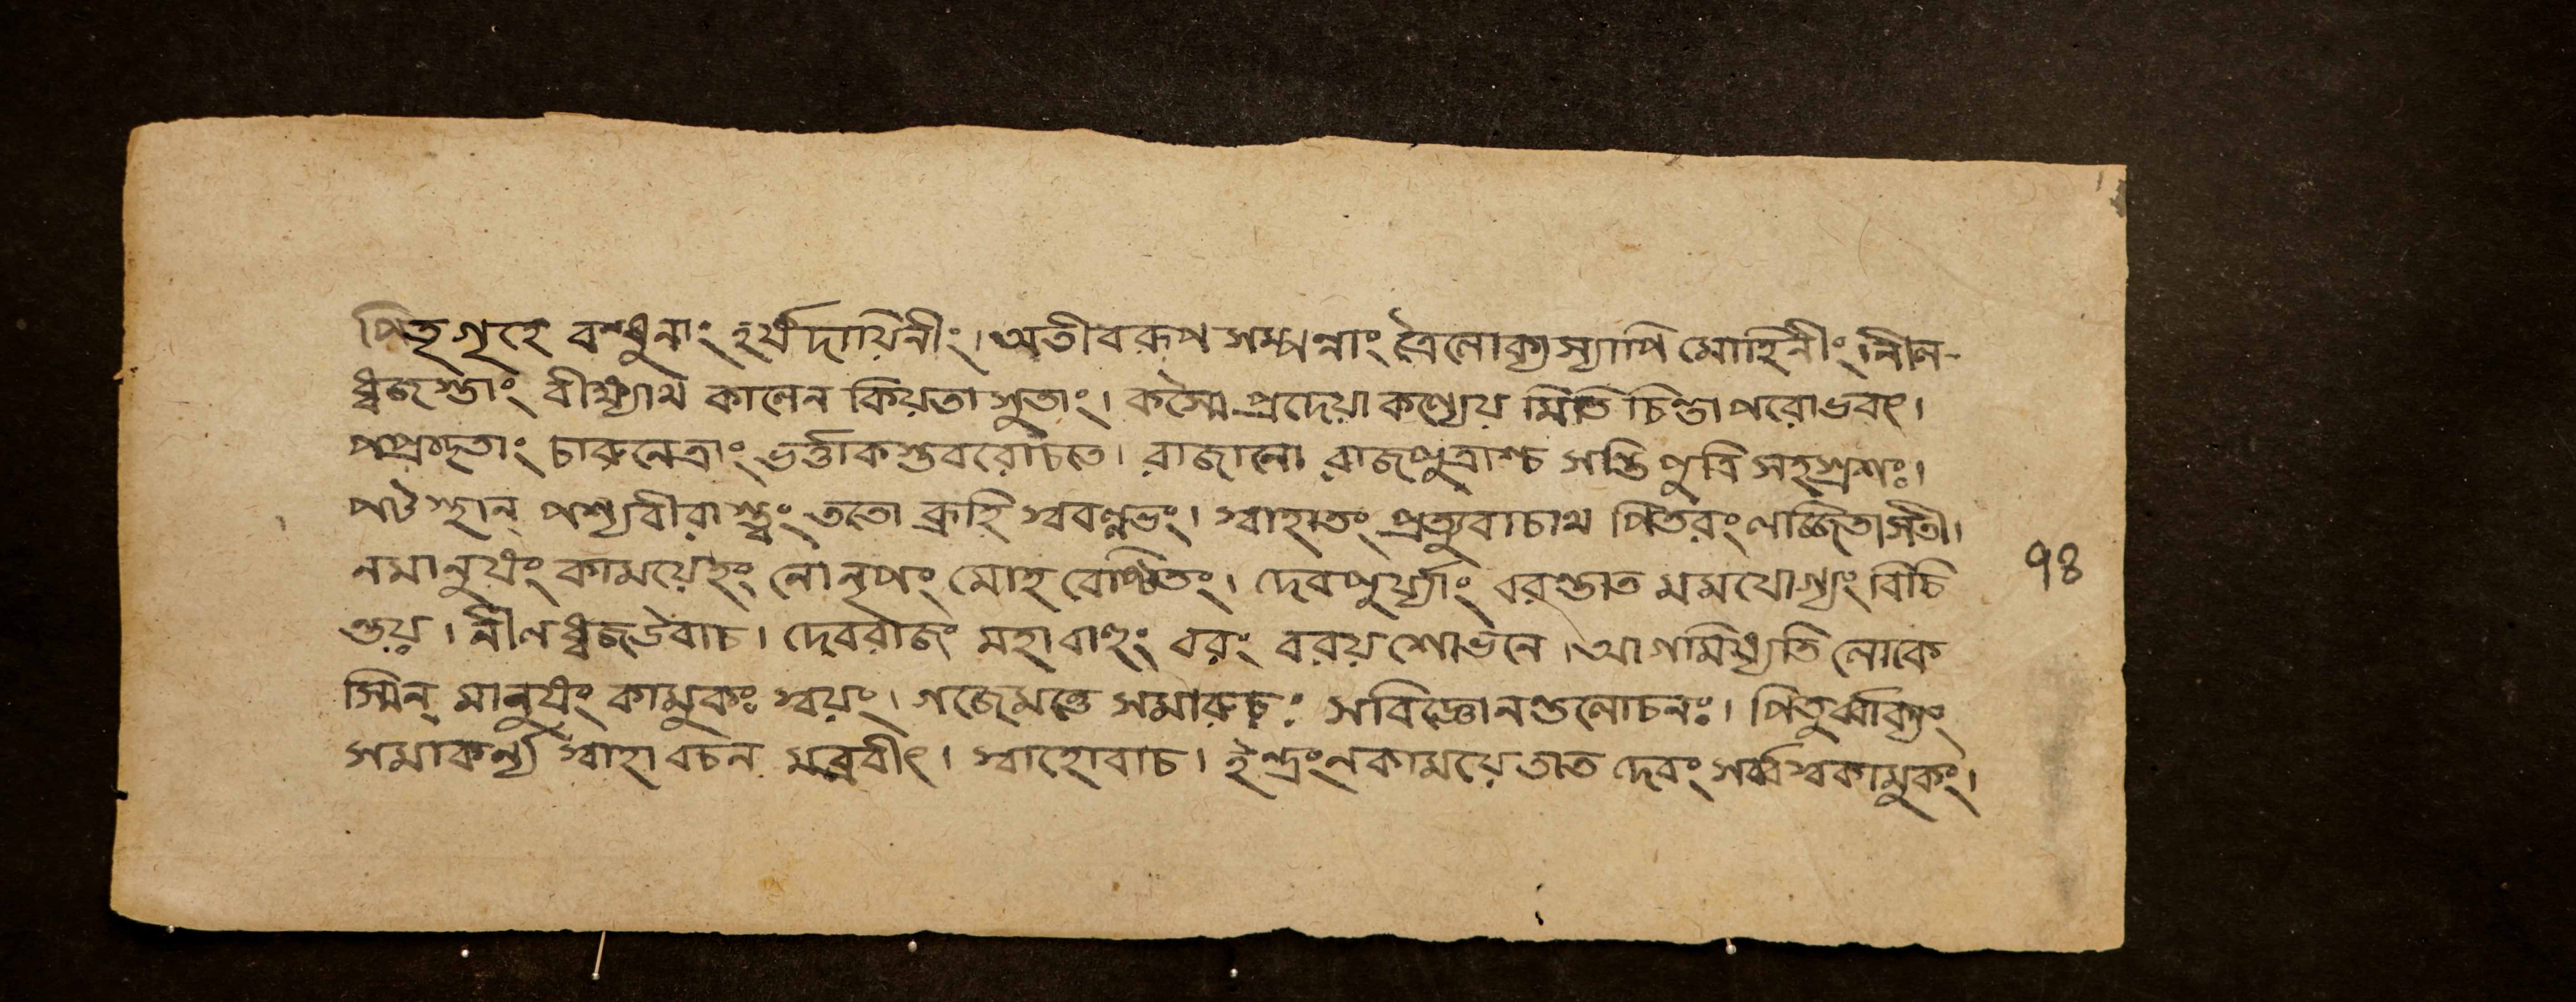 পিতৃগৃহে বন্ধুনাং হর্ষদায়িনীং। অতীবরূপসম্পন্নাং ত্রৈলোক্যস্যাপি মোহিনীং। নীল-
ধ্বজস্তাং বীক্ষ্যাথ কালেন কিয়তা সুতাং। কস্মৈ প্রদেয়া কণ্যেয়মিতি চিন্তাপরোভবৎ।
পপ্রচ্ছতাং চারুনেত্রাং ভর্ত্তাকস্তবরোচতে। রাজানো রাজপুত্রাশ্চ সন্তি পুত্রি সহস্রশঃ।
পটস্থান্ পশ্যবীরাস্ত্বং ততো ব্রূহি স্ববল্লভং। স্বাহাতং প্রত্যুবাচাথ পিতরং লজ্জিতাসতী।
নমানুষং কাময়েহং নো নৃপং মোহবেষ্টিতং। দেবপুর্য্যাং বরস্তাত মমযোগ্যং বিচি
ন্তয়। নীলধ্বজউবাচ। দেবরাজং মহাবাহুং বরং বরয়শোভনে। আগমিষ্যতি লোকে
স্মিন্ মানুষং কামুকঃ স্বয়ং। গজেমত্তে সমারুঢঃ সবিজ্ঞোনস্তলোচনঃ। পিতুর্ব্বাক্যং
সমাকর্ন্য স্বাহাবচনমব্রবীৎ। স্বাহোবাচ। ইন্দ্রংনকাময়েতাত দেবং সর্ব্বস্বকামুকং।
৭৪